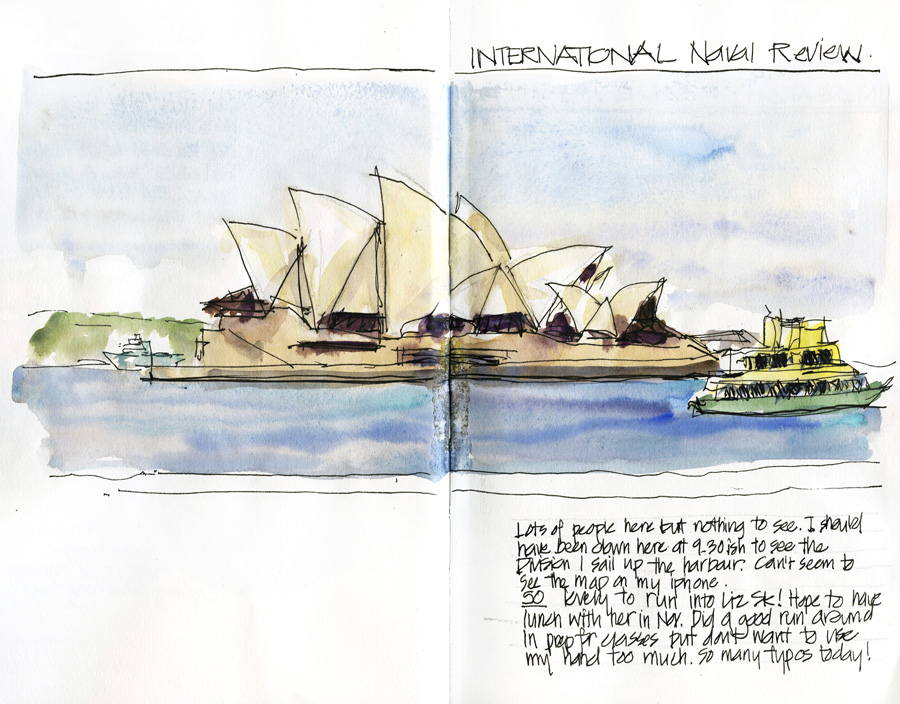 INTERNATIONAL Naval Review.
Lots of people here but nothing to see. I should
have been down here at 9.30ish to see the
Division 1 sail up the harbour. Can't seem to
see the map on my iphone.
SO lovely to run into Liz St! Hope to have
lunch with her in Nov. Did a good run around
in prep for classes but don't want to use
my hand too much. So many typos today!